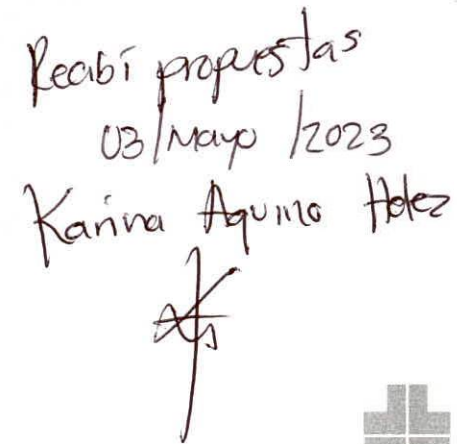 Recabí propuestas
03/Mayo/2023
Karina Aquino Hdez